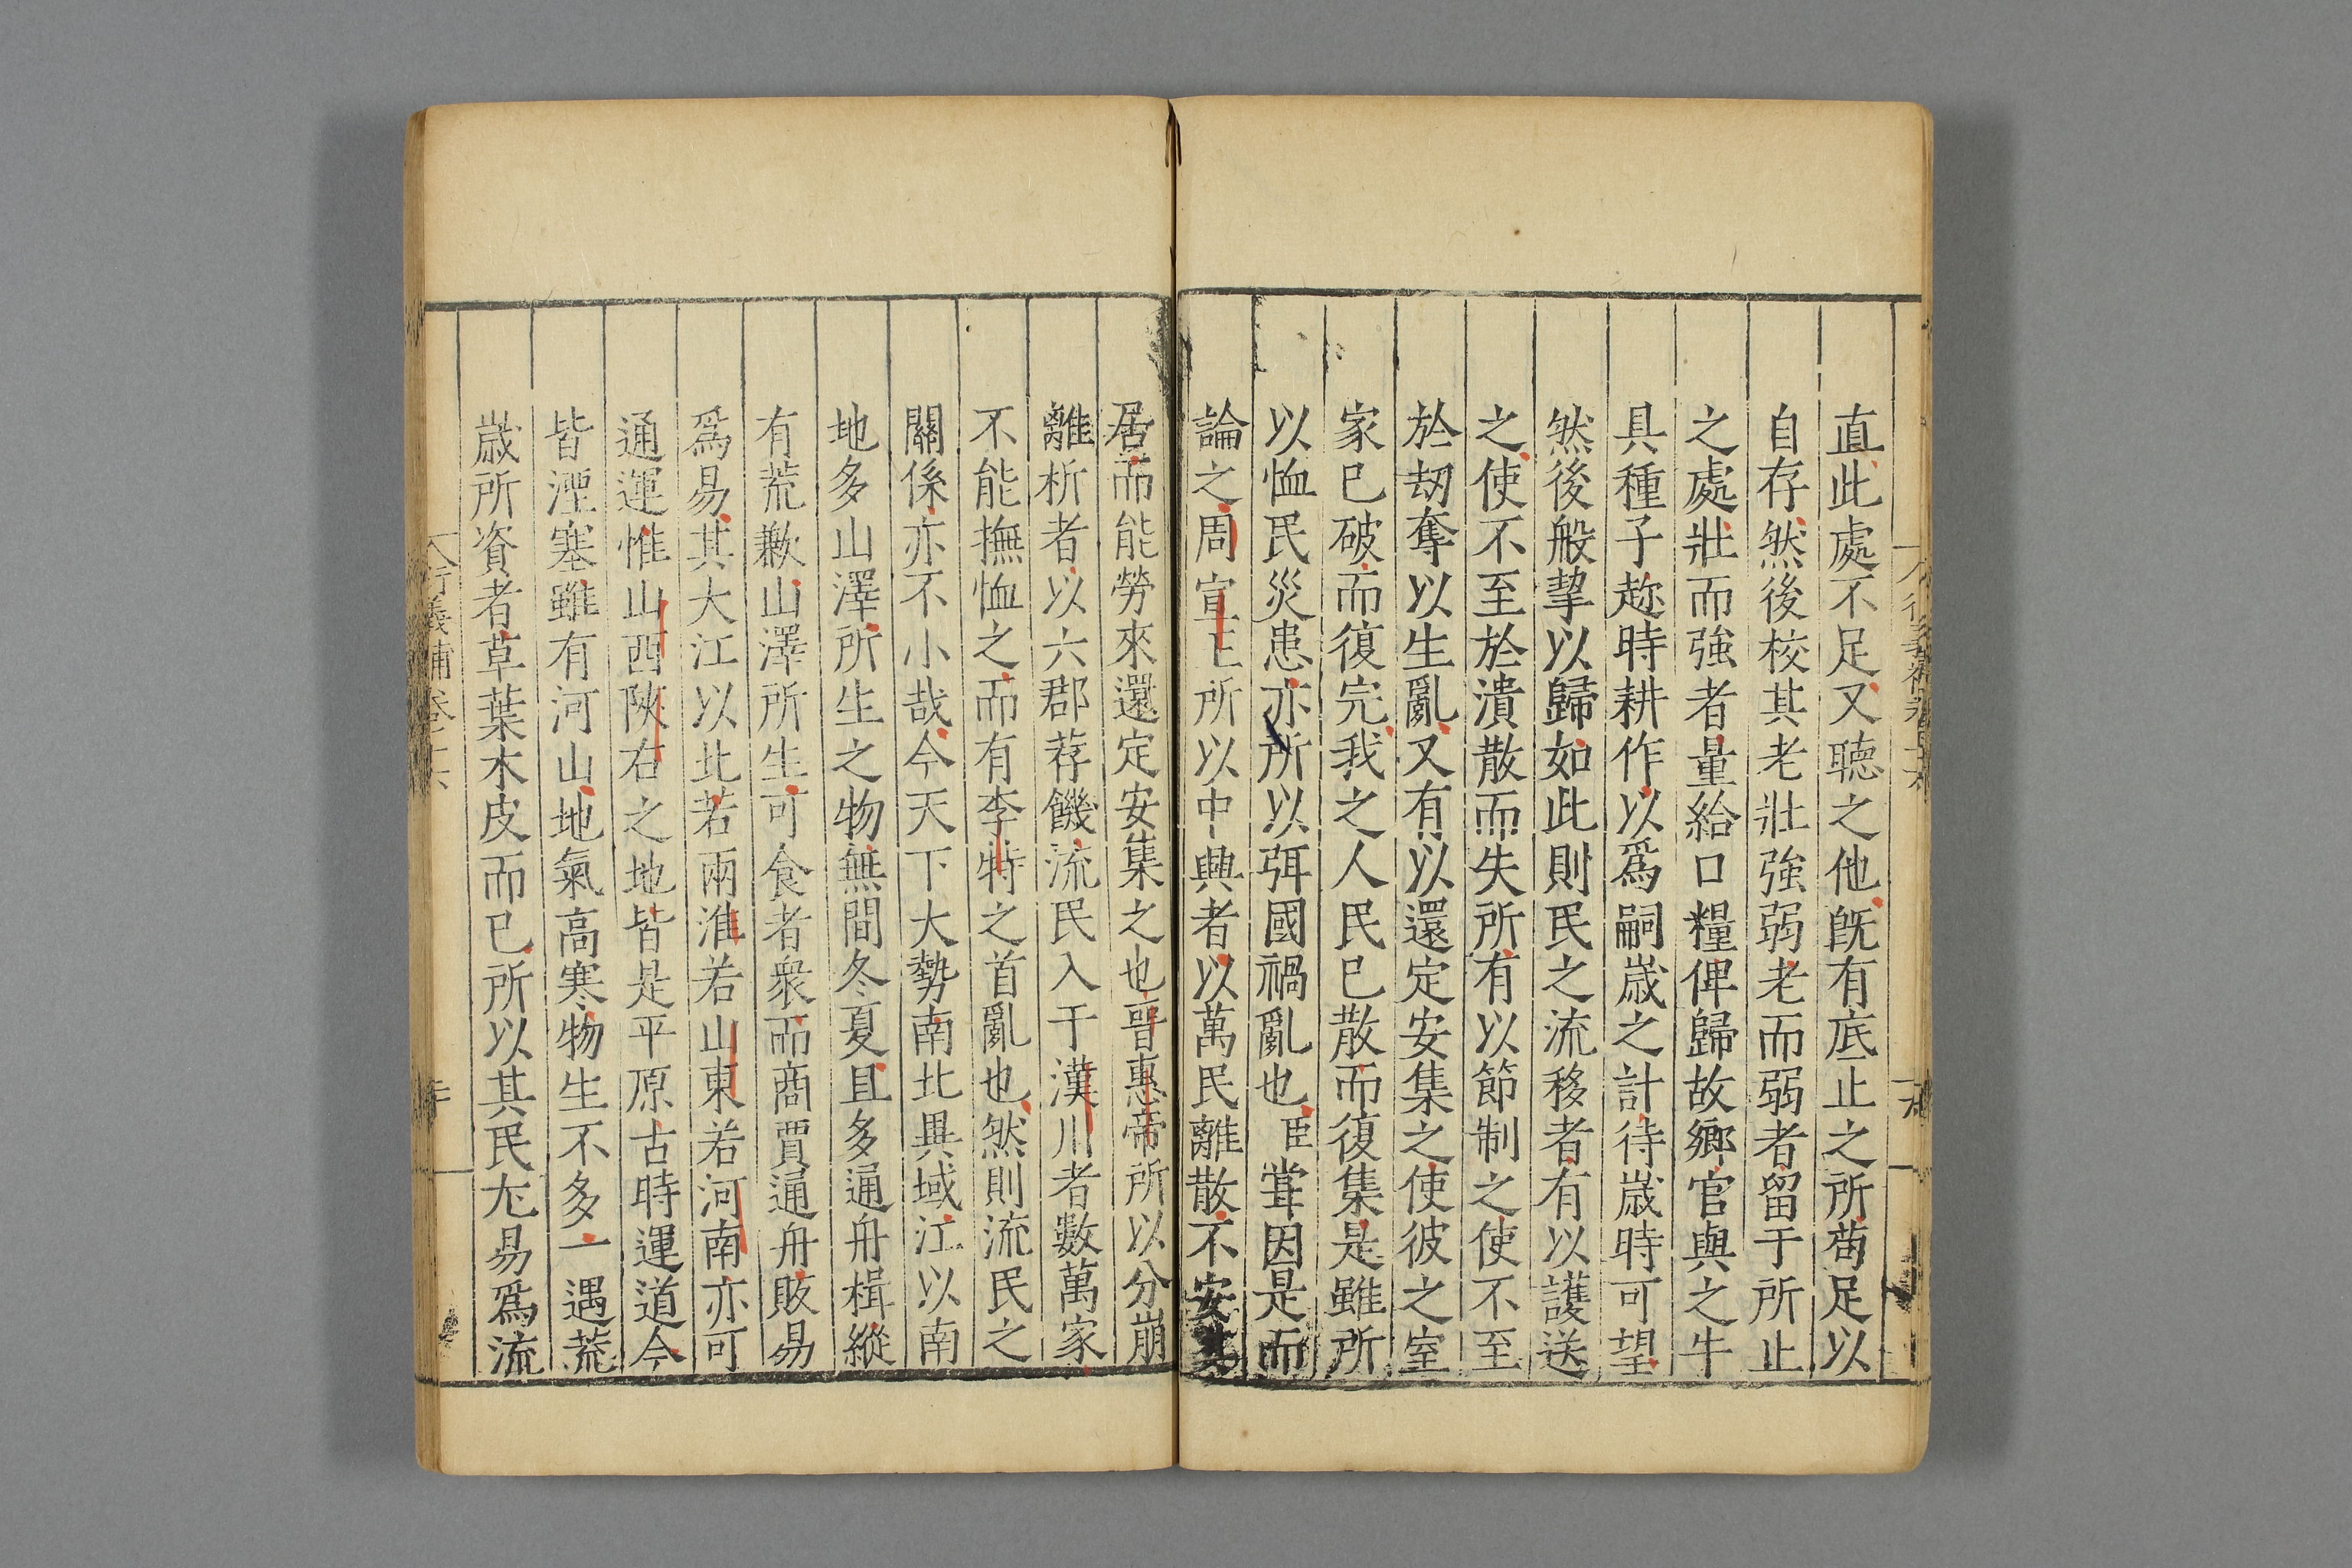 直此處不足又聴之他既有底止之所苟足以
自存然後校其老壯強弱老而弱者留于所止
之處壯而強者量給口糧俾歸故鄉官與之牛
具種子趂時耕作以爲嗣歲之計待歲時可望
然後般挈以歸如此則民之流移者有以護送
之使不至於潰散而失所有以節制之使不至
於刼奪以生亂又有以還定安集之使彼之室
家已破而復完我之人民已散而復集是雖所
以恤民災患亦所以弭國禍亂也臣甞因是而
論之周宣王所以中興者以萬民離散不安其
居而能勞來還定安集之也晉惠帝所以分崩
離析者以六郡荐饑流民入于漢川者數萬家
不能撫恤之而有李特之首亂也然則流民之
關係亦不小哉今天下大勢南北異域江以南
地多山澤所生之物無間冬夏且多通舟楫縱
有荒歉山澤所生可食者衆而商賈通舟販易
爲易其大江以北若兩淮若山東若河南亦可
通運惟山西陝右之地皆是平原古時運道今
皆湮塞雖有河山地氣高寒物生不多一遇荒
歲所資者草葉木皮而已所以其民尤易爲流